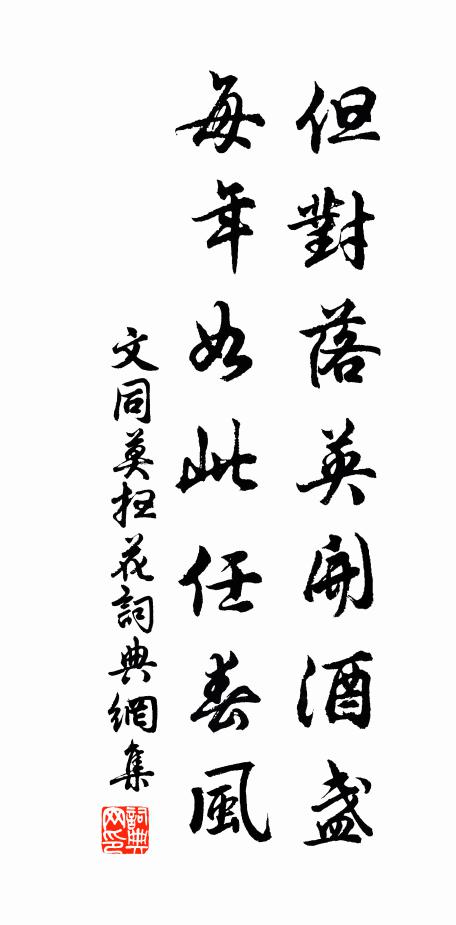 但對落英開酒盞
每年如此任春風
文同莫掃花詞典網集
詞典网印